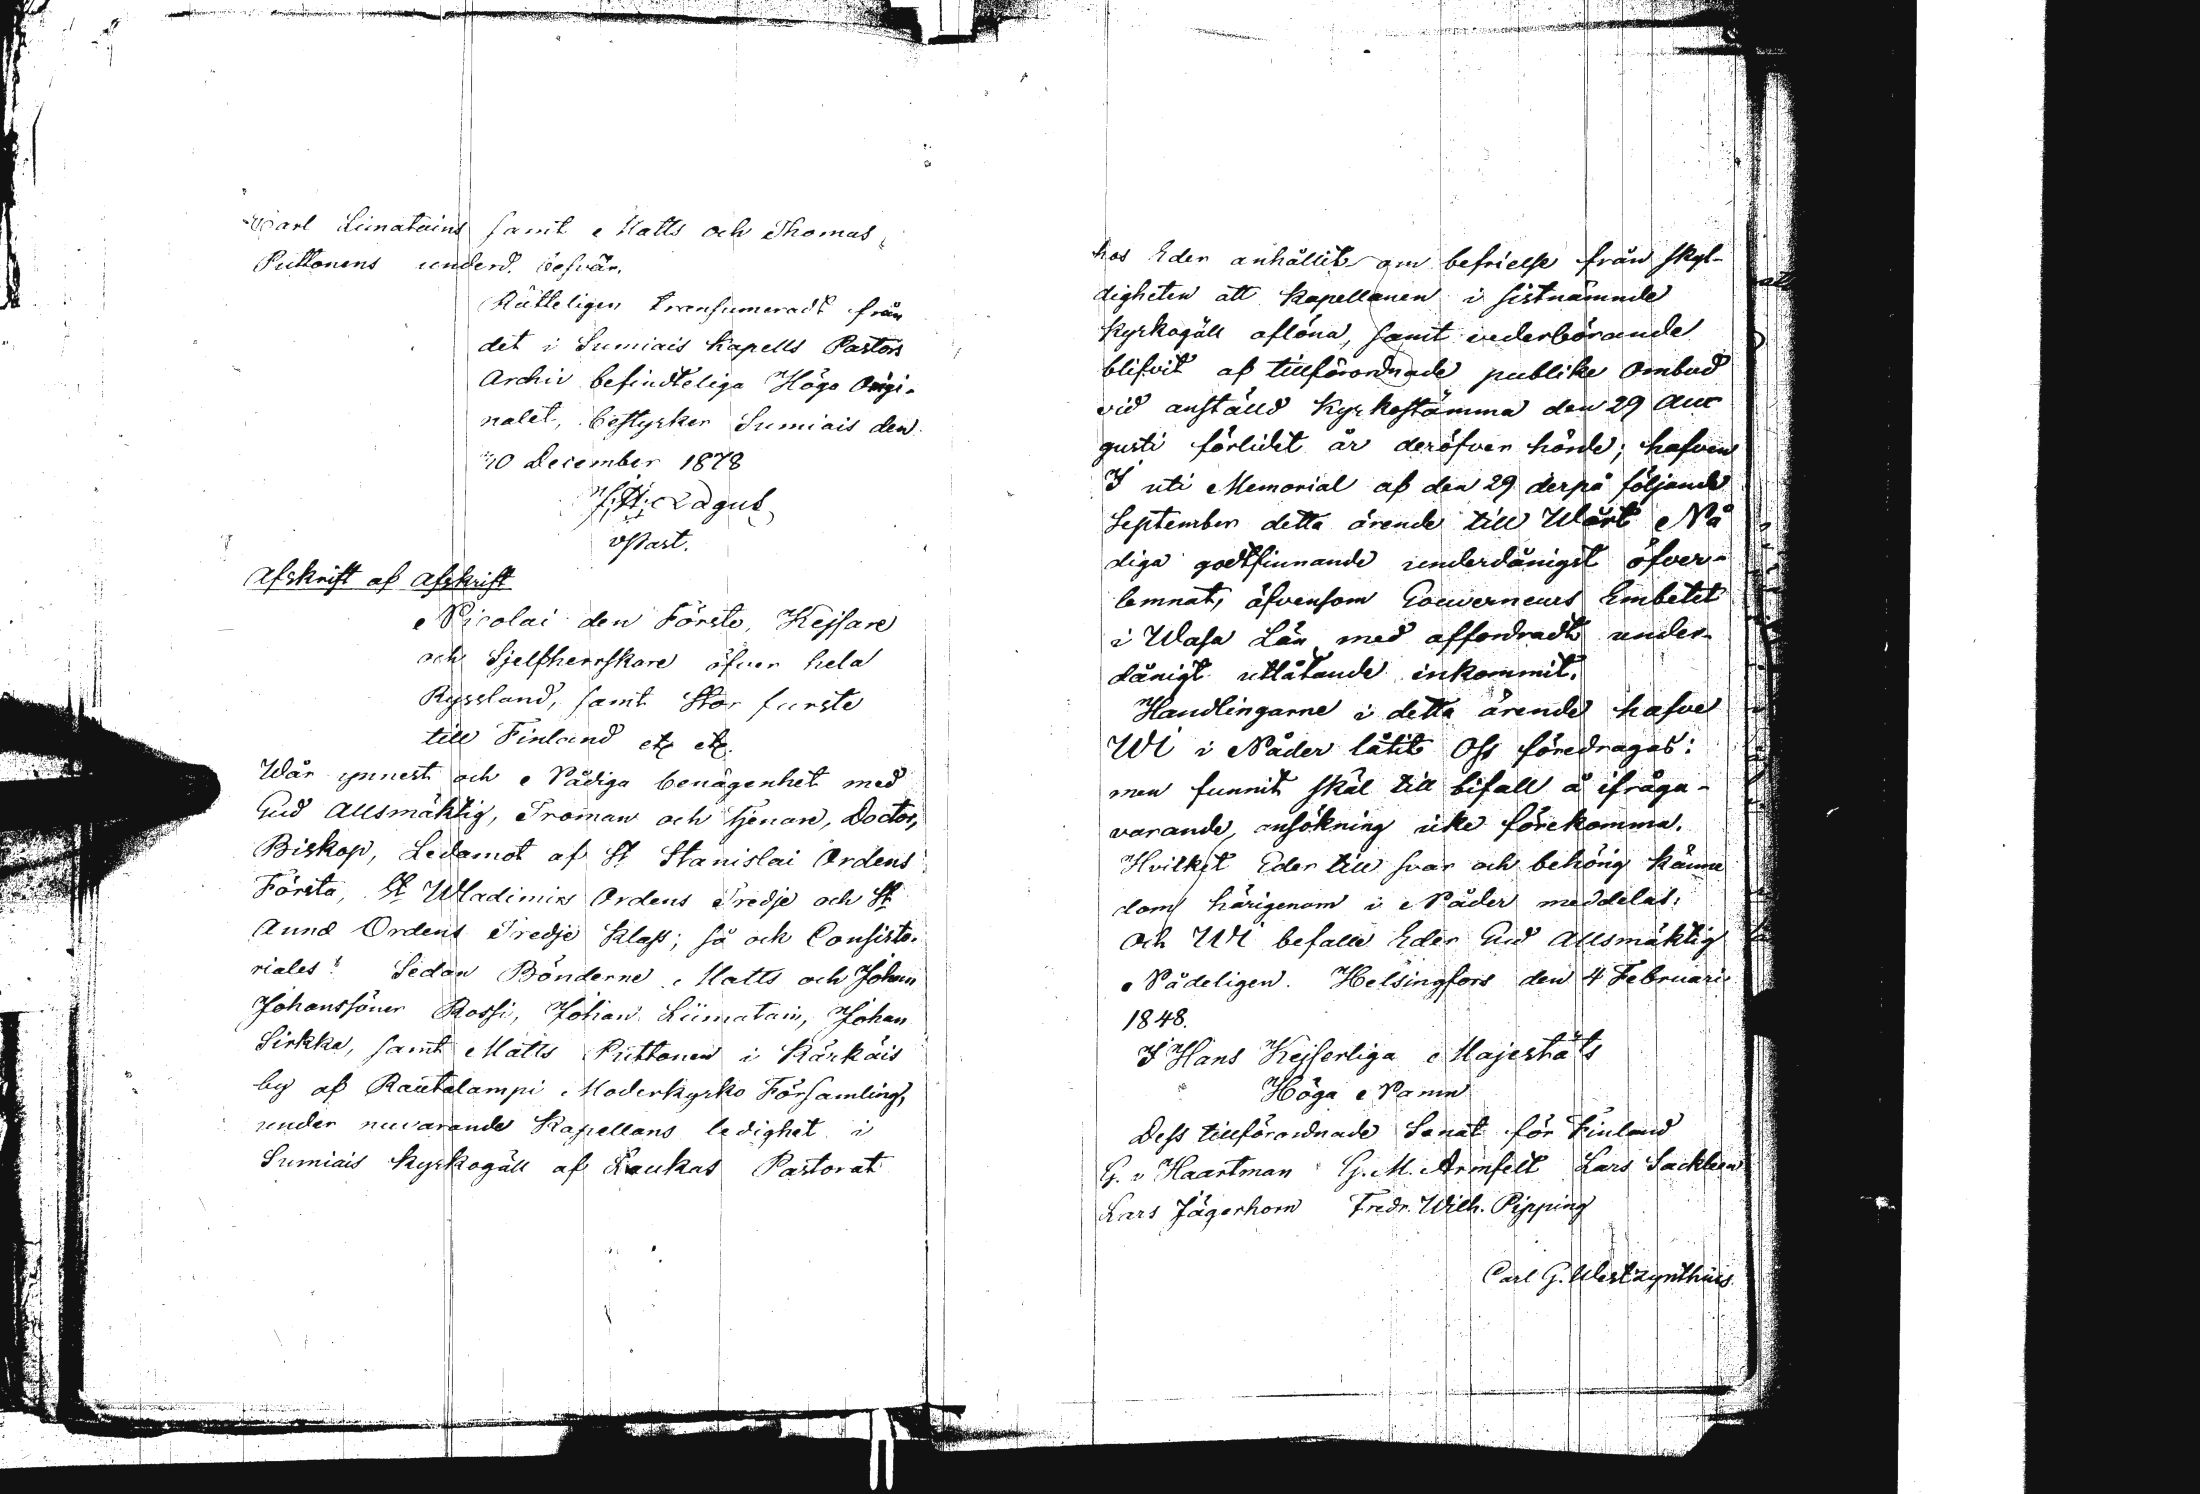 Carl Limatains samt Matts och Thomas
Puttonens underd. besvär.
Rätteligen transumeradt från
det i Sumiais Kapells Pastors
Archiv befindteliga Höga Origi-
nalet, bestyrker Sumiais den
10 December 1878
Lagus
vPast.
Afskrift af Afskrift
Nicolai den Förste, Kejsare
och Sjelfherrskare öfver hela
Ryssland, samt Stor furste
till Finland etc etc.
Wår ynnest och Nådiga benägenhet med
Gud Allsmäktig, Troman och tjenare, Doctor,
Biskop, Ledamot af St Stanislai Ordens
Första, St Wladimirs Ordens Tredje och St
Annæ Ordens Tredje Klass; så ock Consisto-
riales! Sedan Bönderne Matts och Johan
Johanssöner Rossi, Johan Liimatain, Johan
Sirkka, samt Matts Puttonen i Kärkäis
by af Rautalampi Moderkyrko Församling,
under nuvarande Kapellans ledighet i
Sumiais Kyrkogäll af Laukas Pastorat
hos Eder anhållit om befrielse från skyl-
digheten att Kapellanen i sistnämnde
Kyrkogäll aflöna, samt vederbörande
blifvit af tillförordnade publike Ombud
vid anställd Kyrkostämma den 29 Au
gusti förlidit år deröfver hörde; hafven
I uti Memorial af den 29 derpå följande
September detta ärende till Wårt Nå
diga godtfinnande underdånigst öfver-
lemnat, äfvensom Gouverneurs Embetet
i Wasa Län med affordradt under-
dånigt utlåtande inkommit.
Handlingarne i detta ärende hafve
Wi i Nåder låtit Oss föredragas:
men funnit skäl till bifall å ifråga-
varande ansökning icke förekomma.
Hvilket Eder till svar och behörig känne
dom härigenom i Nåder meddelas:
och Wi befalle Eder Gud Allsmäktig
Nådeligen. Helsingfors den 4 Februari
1848.
I Hans Kejserliga Majestäts
Höga Namn
Dess tillförordnade Senat för Finland
G. v Haartman G. M. Armfelt Lars Sackleen
Lars Jägerhorn Fredr. Wilh. Pipping
Carl G. Westzynthius